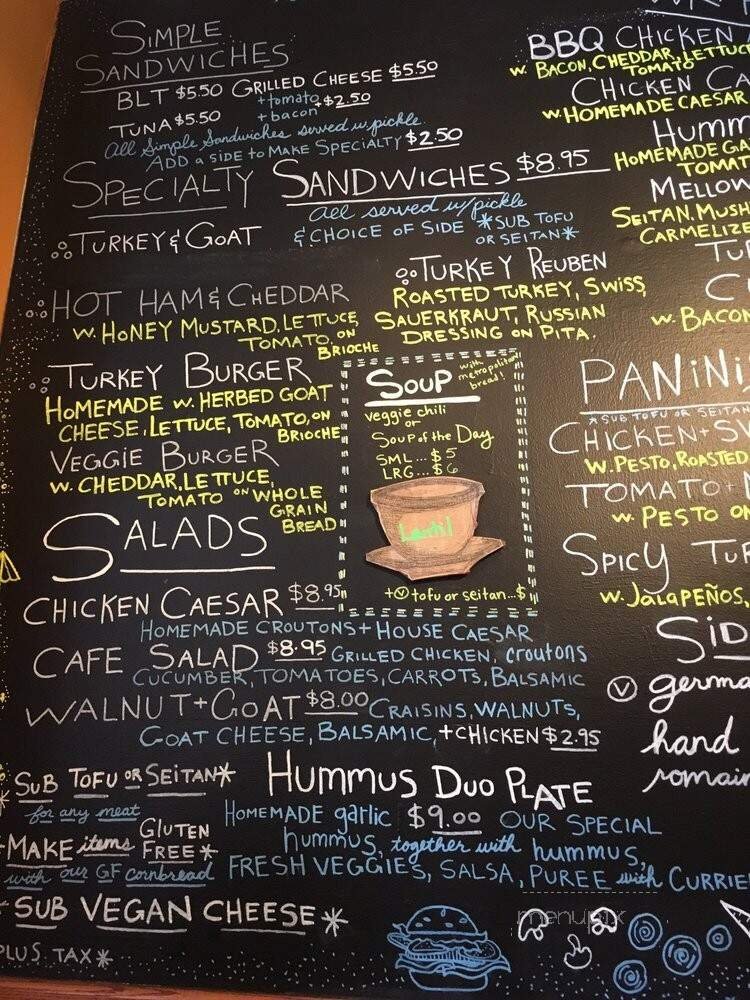 SIMPLE
SANDWICHES
BLT $5.50 GRILLED CHEESE $5.50
+tomato
+bacon $2.50
TUNA $5.50
All Simple Sandwiches served w/ pickle
ADD a SIDE to MAKE SPECIALTY $2.50
SPECIALTY SANDWICHES $8.95
all served w/pickle
& CHOICE OF SIDE *SUB TOFU
OR SEITAN*
TURKEY & GOAT
TURKEY REUBEN
ROASTED TURKEY, SWISS,
SAUERKRAUT, RUSSIAN
DRESSING ON PITA.
HOT HAM & CHEDDAR
W. HONEY MUSTARD, LETTUCE,
TOMATO, ON
BRIOCHE
TURKEY BURGER
HOMEMADE W. HERBED GOAT
CHEESE, LETTUCE, TOMATO, ON
BRIOCHE
VEGGIE BURGER
W. CHEDDAR, LETTUCE,
TOMATO ON WHOLE
GRAIN
BREAD
SOUP with
metropolitan
bread!
veggie chili
or
Soup of the Day
SML... $5
LRG... $6
Lentil
+ V tofu or seitan...$1
SALADS
CHICKEN CAESAR $8.95
HOMEMADE CROUTONS + HOUSE CAESAR
CAFE SALAD $8.95 GRILLED CHICKEN, croutons
CUCUMBER, TOMATOES, CARROTS, BALSAMIC
WALNUT + GOAT $8.00 CRAISINS, WALNUTS,
GOAT CHEESE, BALSAMIC, +CHICKEN $2.95
SUB TOFU OR SEITAN*
for any meat
MAKE items GLUTEN
FREE*
with our GF cornbread
SUB VEGAN CHEESE*
PLUS TAX*
HUMMUS DUO PLATE
HOMEMADE garlic $9.00 OUR SPECIAL
hummus, together with hummus,
FRESH VEGGIES, SALSA, PUREE with CURRIE
BBQ CHICKEN
W. BACON, CHEDDAR, LETTUC
TOMATO
CHICKEN CA
W. HOMEMADE CAESAR
HUMM
HOMEMADE GA
TOMAT
MELLOW
SEITAN, MUSH
CARMELIZE
TU
C
W. BACON
PANINI
*SUB TOFU OR SEITAN
CHICKEN + SW
W. PESTO, ROASTED
TOMATO +
W. PESTO ON
SPICY TUR
W. JALAPEÑOS,
SID
V germa
hand
romain
menupix